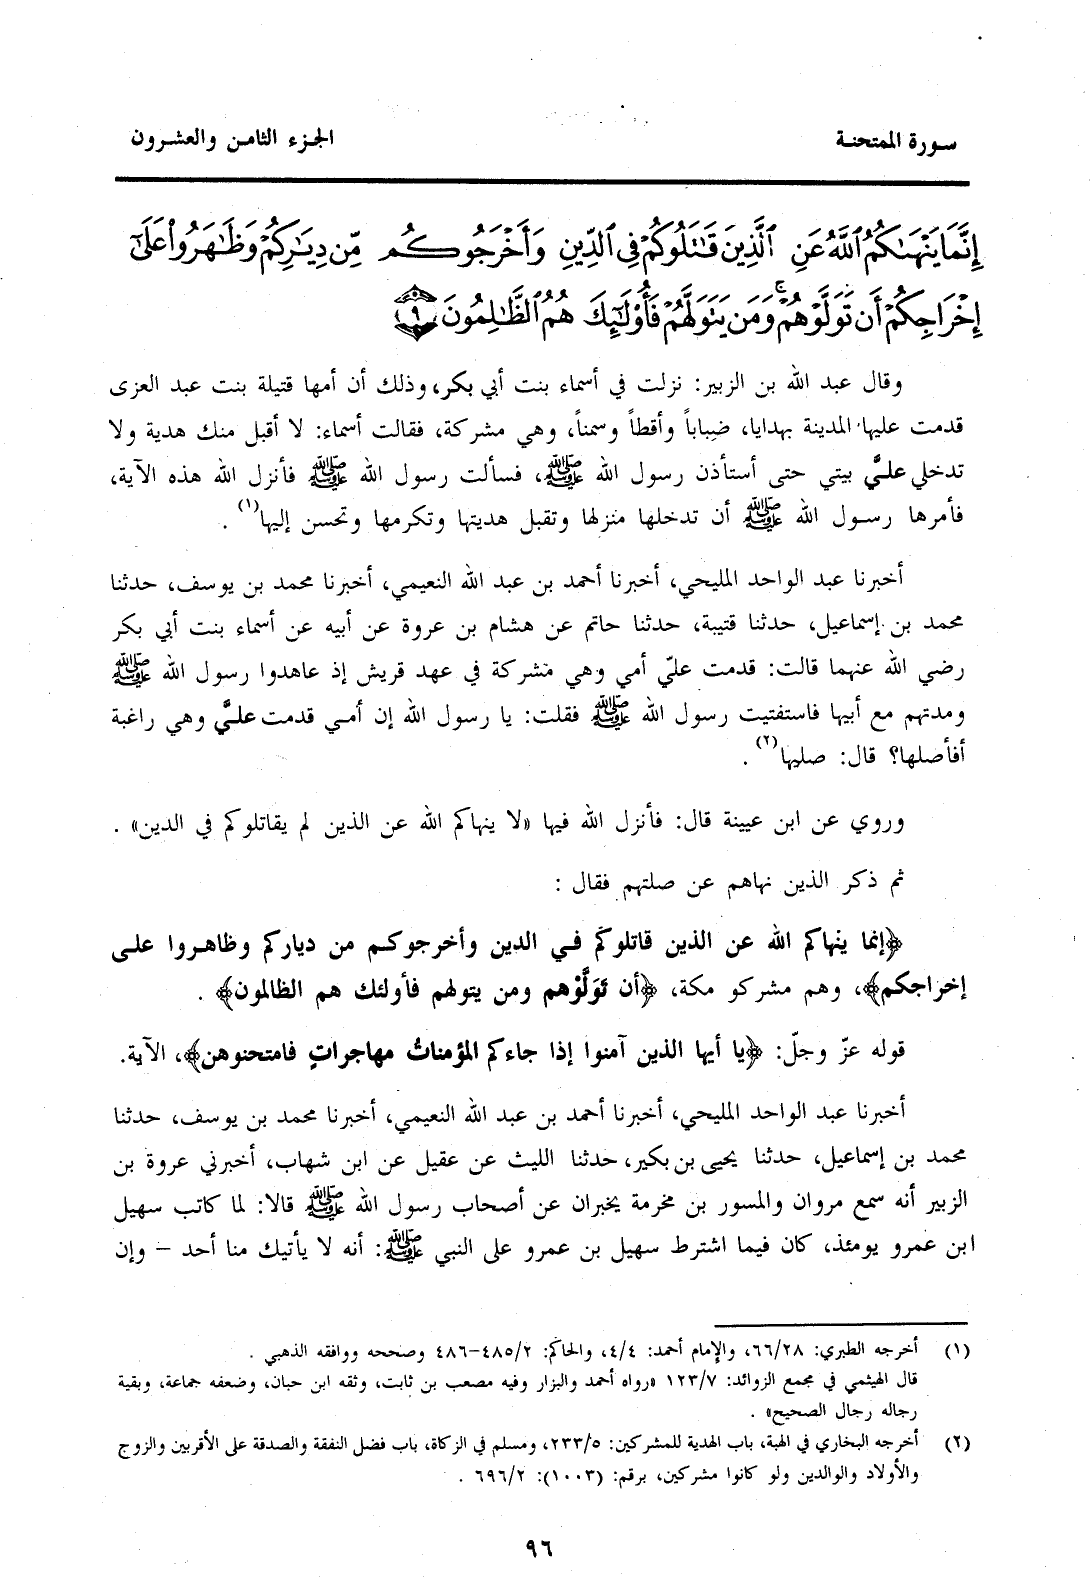 سورة الممتحنة
الجزء الثامن والعشرون
إِنَّمَا يَنْهَىٰكُمُ ٱللَّهُ عَنِ ٱلَّذِينَ قَٰتَلُوكُمْ فِى ٱلدِّينِ وَأَخْرَجُوكُم مِّن دِيَٰرِكُمْ وَظَٰهَرُوا۟ عَلَىٰٓ
إِخْرَاجِكُمْ أَن تَوَلَّوْهُمْ ۚ وَمَن يَتَوَلَّهُمْ فَأُو۟لَٰٓئِكَ هُمُ ٱلظَّٰلِمُونَ ۝٩
وقال عبد الله بن الزبير: نزلت في أسماء بنت أبي بكر، وذلك أن أمها قتيلة بنت عبد العزى
قدمت عليها المدينة بهدايا، ضِباباً وأقطاً وسمناً، وهي مشركة، فقالت أسماء: لا أقبل منك هدية ولا
تدخلي عليَّ بيتي حتى أستأذن رسول الله ﷺ، فسألت رسول الله ﷺ فأنزل الله هذه الآية،
فأمرها رسول الله ﷺ أن تدخلها منزلها وتقبل هديتها وتكرمها وتحسن إليها(١) .
أخبرنا عبد الواحد المليحي، أخبرنا أحمد بن عبد الله النعيمي، أخبرنا محمد بن يوسف، حدثنا
محمد بن إسماعيل، حدثنا قتيبة، حدثنا حاتم عن هشام بن عروة عن أبيه عن أسماء بنت أبي بكر
رضي الله عنهما قالت: قدمت عليّ أمي وهي مشركة في عهد قريش إذ عاهدوا رسول الله ﷺ
ومدتهم مع أبيها فاستفتيت رسول الله ﷺ فقلت: يا رسول الله إن أمي قدمت عليَّ وهي راغبة
أفأصلها؟ قال: صليها(٢) .
وروي عن ابن عيينة قال: فأنزل الله فيها «لا ينهاكم الله عن الذين لم يقاتلوكم في الدين» .
ثم ذكر الذين نهاهم عن صلتهم فقال :
﴿إنما ينهاكم الله عن الذين قاتلوكم في الدين وأخرجوكم من دياركم وظاهروا على
إخراجكم﴾، وهم مشركو مكة، ﴿أن تَوَلَّوْهم ومن يتولهم فأولئك هم الظالمون﴾ .
قوله عزّ وجلّ: ﴿يا أيها الذين آمنوا إذا جاءكم المؤمناتُ مهاجراتٍ فامتحنوهن﴾، الآية.
أخبرنا عبد الواحد المليحي، أخبرنا أحمد بن عبد الله النعيمي، أخبرنا محمد بن يوسف، حدثنا
محمد بن إسماعيل، حدثنا يحيى بن بكير، حدثنا الليث عن عقيل عن ابن شهاب، أخبرني عروة بن
الزبير أنه سمع مروان والمسور بن مخرمة يخبران عن أصحاب رسول الله ﷺ قالا: لما كاتب سهيل
ابن عمرو يومئذ، كان فيما اشترط سهيل بن عمرو على النبي ﷺ: أنه لا يأتيك منا أحد – وإن
(١) أخرجه الطبري: ٦٦/٢٨، والإمام أحمد: ٤/٤، والحاكم: ٤٨٥/٢–٤٨٦ وصححه ووافقه الذهبي .
قال الهيثمي في مجمع الزوائد: ١٢٣/٧ «رواه أحمد والبزار وفيه مصعب بن ثابت، وثقه ابن حبان، وضعفه جماعة، وبقية
رجاله رجال الصحيح» .
(٢) أخرجه البخاري في الهبة، باب الهدية للمشركين: ٢٣٣/٥، ومسلم في الزكاة، باب فضل النفقة والصدقة على الأقربين والزوج
والأولاد والوالدين ولو كانوا مشركين، برقم: (١٠٠٣): ٦٩٦/٢ .
٩٦